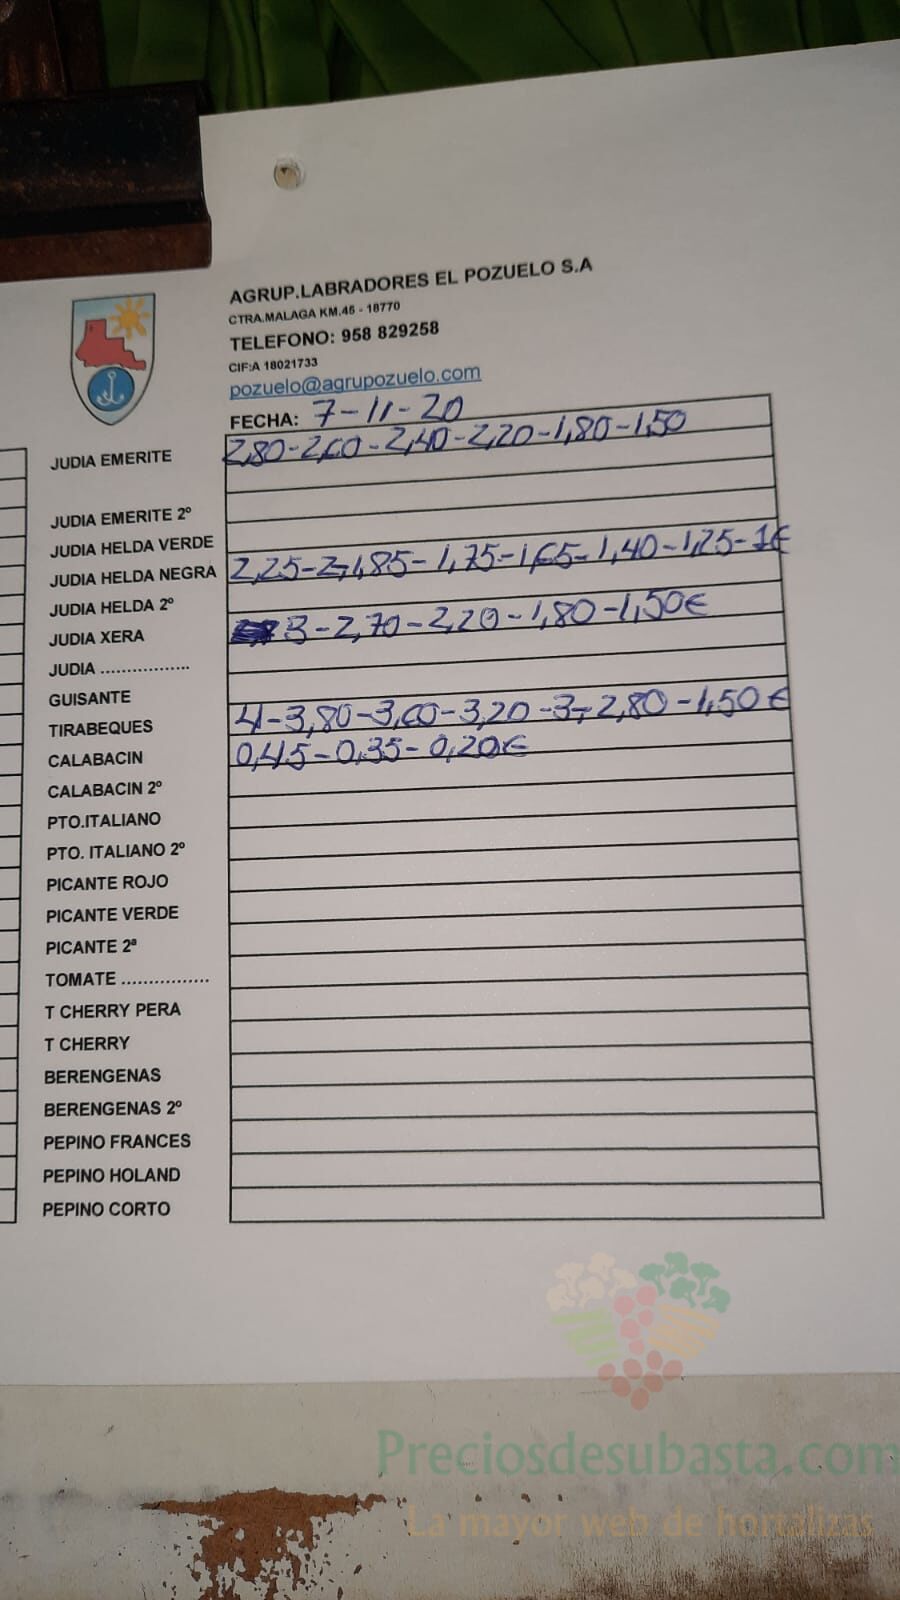 AGRUP.LABRADORES EL POZUELO S.A
CTRA.MALAGA KM.45 - 18770
TELEFONO: 958 829258
CIF:A 18021733
pozuelo@agrupozuelo.com
FECHA: 7-11-20
JUDIA EMERITE 2,80-2,60-2,40-2,20-1,80-1,50
JUDIA EMERITE 2º
JUDIA HELDA VERDE
JUDIA HELDA NEGRA 2,25-2-1,85-1,75-1,65-1,40-1,25-1€
JUDIA HELDA 2º
JUDIA XERA 3-2,70-2,20-1,80-1,50€
JUDIA .................
GUISANTE
TIRABEQUES 4-3,80-3,60-3,20-3-2,80-1,50€
CALABACIN 0,45-0,35-0,20€
CALABACIN 2º
PTO.ITALIANO
PTO. ITALIANO 2º
PICANTE ROJO
PICANTE VERDE
PICANTE 2ª
TOMATE ................
T CHERRY PERA
T CHERRY
BERENGENAS
BERENGENAS 2º
PEPINO FRANCES
PEPINO HOLAND
PEPINO CORTO
Preciosdesubasta.com
La mayor web de hortalizas